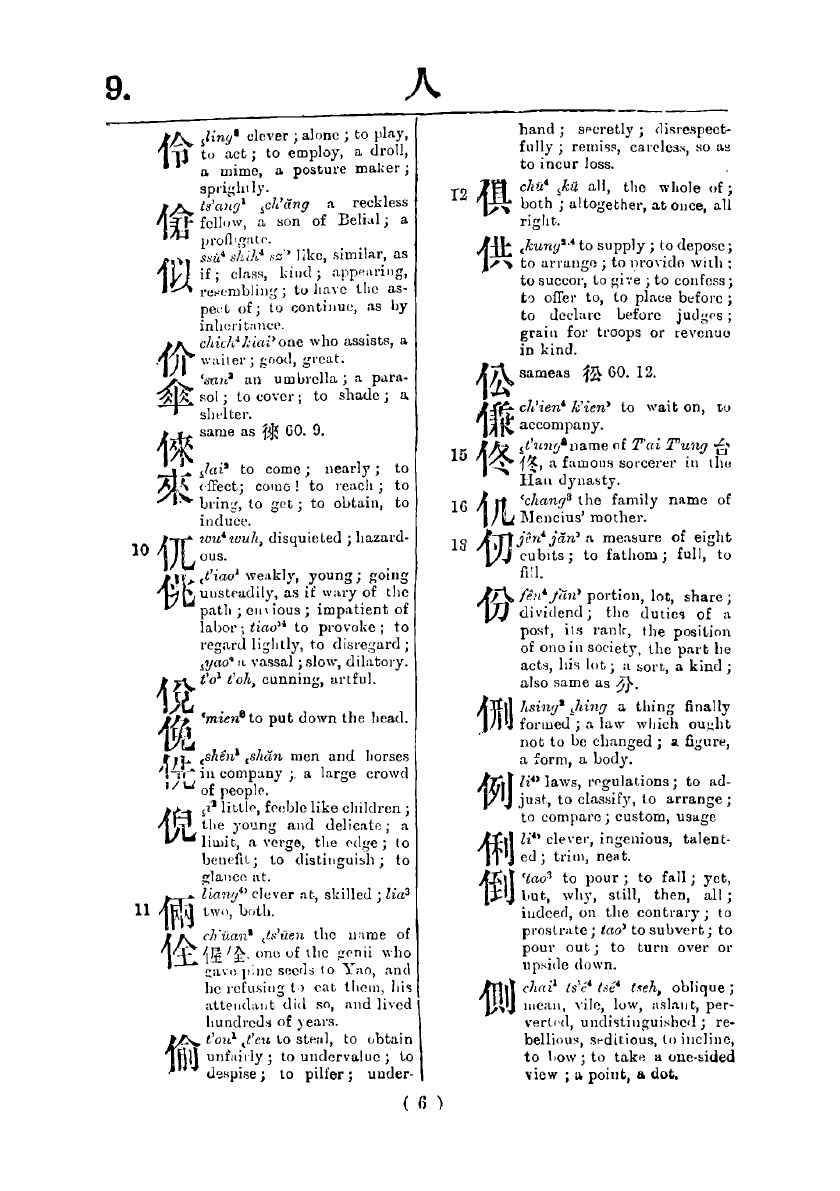 9.
人
伶 ‚ling² clever ; alone ; to play,
to act ; to employ, a droll,
a mime, a posture maker ;
sprightly.
傖 ts'ang¹ ‚ch'ăng a reckless
fellow, a son of Belial ; a
profligate.
似 ssŭ⁴ shih⁴ sz'’ like, similar, as
if ; class, kind ; appearing,
resembling ; to have the as-
pect of ; to continue, as by
inheritance.
价 chieh⁴ kiai’ one who assists, a
waiter ; good, great.
傘 ‘san³ an umbrella ; a para-
sol ; to cover ; to shade ; a
shelter.
倈 same as 徠 60. 9.
來 ‚lai² to come ; nearly ; to
effect; come ! to reach ; to
bring, to get ; to obtain, to
induce.
10 伔 wu⁴ wuh, disquieted ; hazard-
ous.
佻 ‚t'iao¹ weakly, young ; going
unsteadily, as if wary of the
path ; envious ; impatient of
labor ; tiao’⁴ to provoke ; to
regard lightly, to disregard ;
‚yao² a vassal ; slow, dilatory.
侻 t'o¹ t'oh, cunning, artful.
俛 ‘mien³ to put down the head.
侁 ‚shên¹ ‚shăn men and horses
in company ; a large crowd
of people.
倪 ‚i² little, feeble like children ;
the young and delicate ; a
limit, a verge, the edge ; to
benefit ; to distinguish ; to
glance at.
11 倆 liang⁴’ clever at, skilled ; lia³
two, both.
佺 ch'üan² ‚ts'üen the name of
偓佺, one of the genii who
gave pine seeds to Yao, and
he refusing to eat them, his
attendant did so, and lived
hundreds of years.
偷 t'ou¹ ‚t'eu to steal, to obtain
unfairly ; to undervalue ; to
despise ; to pilfer ; under-
hand ; secretly ; disrespect-
fully ; remiss, careless, so as
to incur loss.
12 俱 chü⁴ ‚kü all, the whole of ;
both ; altogether, at once, all
right.
供 ‚kung¹·⁴ to supply ; to depose ;
to arrange ; to provide with ;
to succor, to give ; to confess ;
to offer to, to place before ;
to declare before judges ;
grain for troops or revenue
in kind.
伀 same as 彸 60. 12.
傔 ch'ien⁴ k'ien’ to wait on, to
accompany.
15 佟 ‚t'ung² name of T'ai T'ung 台
佟, a famous sorcerer in the
Han dynasty.
16 仉 ‘chang³ the family name of
Mencius' mother.
18 仞 jên⁴ jăn’ a measure of eight
cubits ; to fathom ; full, to
fill.
份 fên⁴ făn’ portion, lot, share ;
dividend ; the duties of a
post, its rank, the position
of one in society, the part he
acts, his lot ; a sort, a kind ;
also same as 分.
侀 hsing² ‚hing a thing finally
formed ; a law which ought
not to be changed ; a figure,
a form, a body.
例 li⁴’ laws, regulations ; to ad-
just, to classify, to arrange ;
to compare ; custom, usage
俐 li⁴’ clever, ingenious, talent-
ed ; trim, neat.
倒 ‘tao³ to pour ; to fall ; yet,
but, why, still, then, all ;
indeed, on the contrary ; to
prostrate ; tao’ to subvert ; to
pour out ; to turn over or
upside down.
側 chai¹ ts'ê⁴ tsê⁴ tseh, oblique ;
mean, vile, low, aslant, per-
verted, undistinguished ; re-
bellious, seditious, to incline,
to bow ; to take a one-sided
view ; a point, a dot.
( 6 )